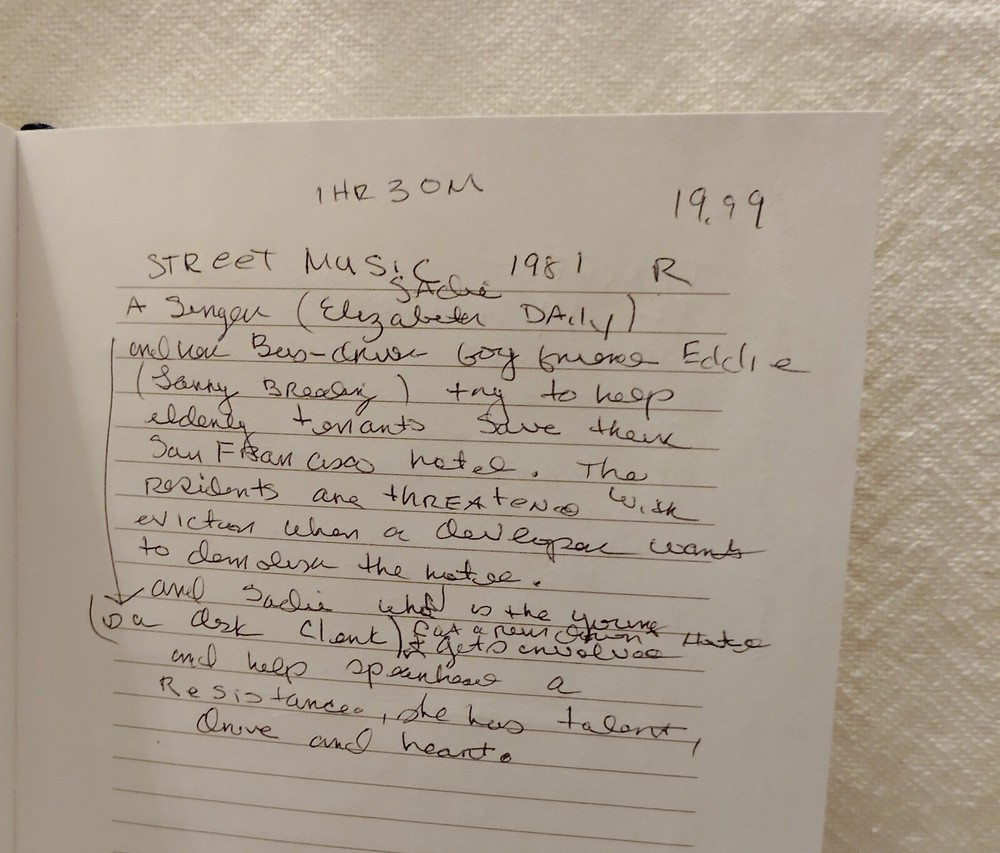 1HR30M
19.99
STREET MUSIC 1981 R
Sadie
A Singer (Elizabeth DAily)
and her Bus-driver boy friend Eddie
(Larry Breeding) try to help
elderly tenants save their
San Francisco hotel. The
Residents are tHREAtened with
eviction when a developer wants
to demolish the hotel.
and Sadie who is the young
(is a desk clerk) for a run down Hotel
gets involved
and help spearhead a
Resistance, she has talent,
drive and heart.